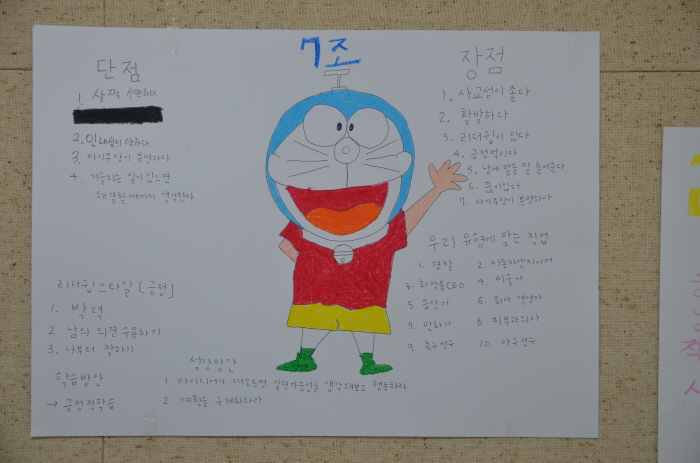 7조
단점
1. 살짝 산만하다
2. 인내심이 약하다
3. 자기주장이 분명하다
4. 거슬리는 일이 있으면
해결될때까지 생각한다
장점
1. 사교성이 좋다
2. 활발하다
3. 리더쉽이 있다
4. 긍정적이다
5. 남에 말을 잘 들어준다
6. 끈기있다
7. 자기주장이 분명하다
우리 유형에 맞는 직업
1. 경찰 2. 자동차엔지니어
3. 화장품CEO 4. 미술가
5. 음악가 6. 회사 경영자
7. 만화가 8. 피부과의사
9. 축구선수 10. 야구선수
리더쉽 스타일 [긍정]
1. 박력
2. 남의 의견 수용하기
3. 나부터 잘하기
학습방안
→ 긍정적학습
성장방안
1. 아이디어가 떠오르면 실현가능성을 생각해보고 행동하라
2. 계획을 구체화하라